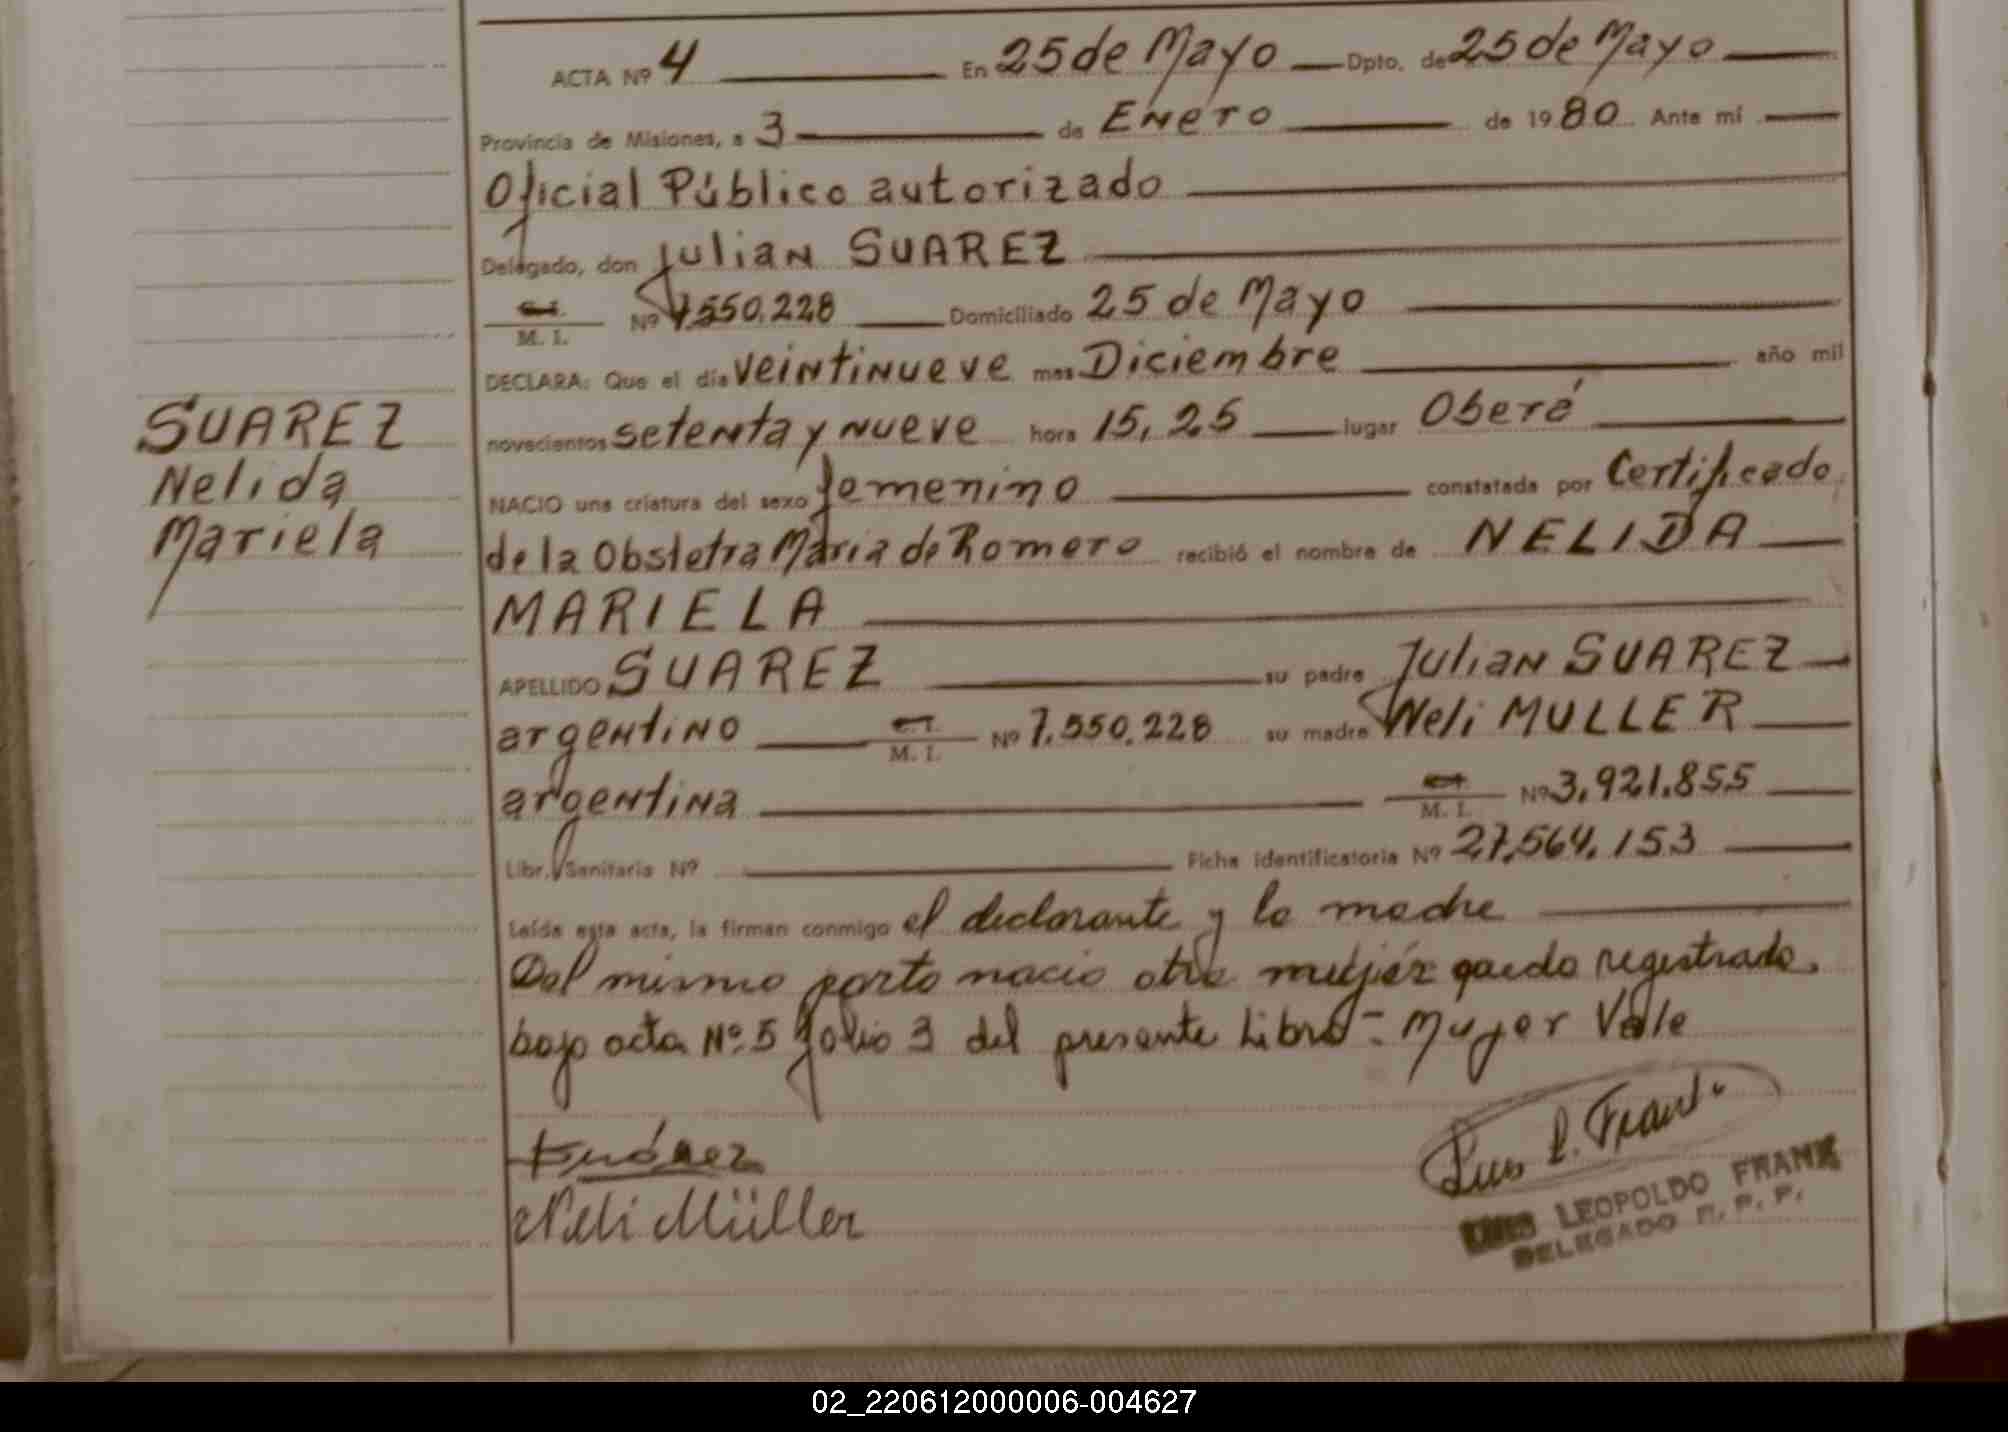 ACTA Nº 4 En 25 de Mayo Dpto. de 25 de Mayo
Provincia de Misiones, a 3 de Enero de 1980 Ante mí
Oficial Público autorizado
Delegado, don Julian SUAREZ
C.I. M. I. Nº 7.550.228 Domiciliado 25 de Mayo
DECLARA: Que el día veintinueve mes Diciembre año mil
novecientos setenta y nueve hora 15,25 lugar Oberá
NACIO una criatura del sexo femenino constatada por Certificado
de la Obstetra Maria de Romero recibió el nombre de NELIDA
MARIELA
APELLIDO SUAREZ su padre Julian SUAREZ
argentino C.I. M. I. Nº 7.550.228 su madre Neli MULLER
argentina C.I. M. I. Nº 3.921.855
Libr. Sanitaria Nº Ficha identificatoria Nº 27.564.153
Leída esta acta, la firman conmigo el declarante y la madre
Del mismo parto nacio otra mujér queda registrada
bajo acta Nº 5 folio 3 del presente Libro - Mujer Vale
SUAREZ
Nelida
Mariela
Neli Müller
Luis L. Frank
LUIS LEOPOLDO FRANK
DELEGADO R. P. P.
02_220612000006-004627